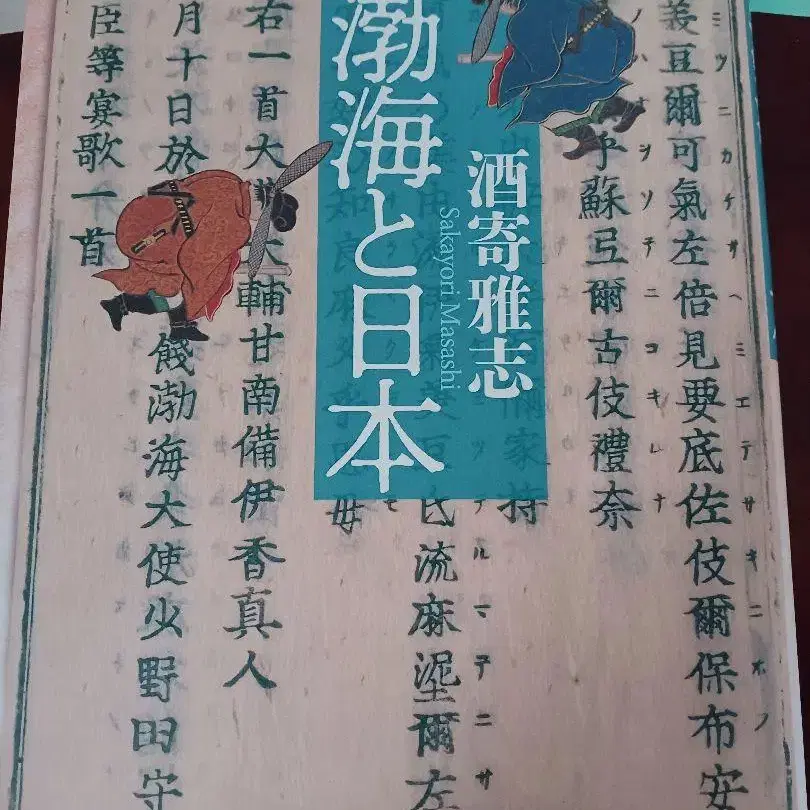 渤海と日本
酒寄雅志
Sakayori Masashi
豆爾可氣左倍見要底佐伎爾保布安
ミツニカケサヘミエテサキニホフ
乎蘇弖爾古伎禮奈
ヲソテニコキレナ
家持
流麻埿爾左
テルマテニサ
右一首大大輔甘南備伊香真人
月十日於餞渤海大使少野田守
臣等宴歌一首